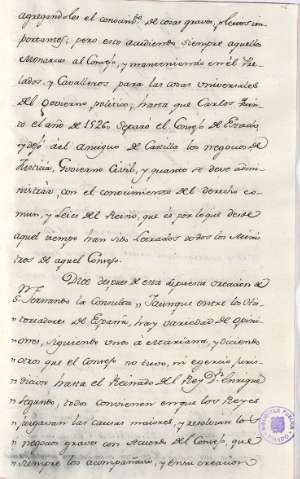 agregandoles el conocimto. de cosas graves, pleitos im
portantes; pero esto acudiendo siempre aquellos
Monarcas al Consejo, y manteniendo en él Pre
lados, y Cavalleros para las cosas universales
del Govierno politico; hasta que Carlos Quin
to el año de 1526, separó el Consejo de Estado,
y dejó del antiguo de Castilla los negocios de
Justicia, Govierno Civil, y quanto se deve admi
nistrar con el conocimiento del derecho co
mun, y Leies del Reino, que es por lo que desde
aquel tiempo han sido Letrados todos los Minis
tros de aquel Consejo.
Dice despues de esta supuesta creacion de
Sn. Fernando la Consulta „ Y aunque entre los His
„ toriadores de España, hay variedad de opini
„ ones, siguiendo unos á Mariana, y diciendo
„ otros que el Consejo no tuvo, ni egerció juris
„ diccion hasta el Reinado del Rey Dn. Enrique
„ segundo, todos convienen en que los Reyes
„ juzgavan las causas maiores, y resolvian los
„ negocios graves con Acuerdo del Consejo, que
„ siempre los acompañava, y en su creacion